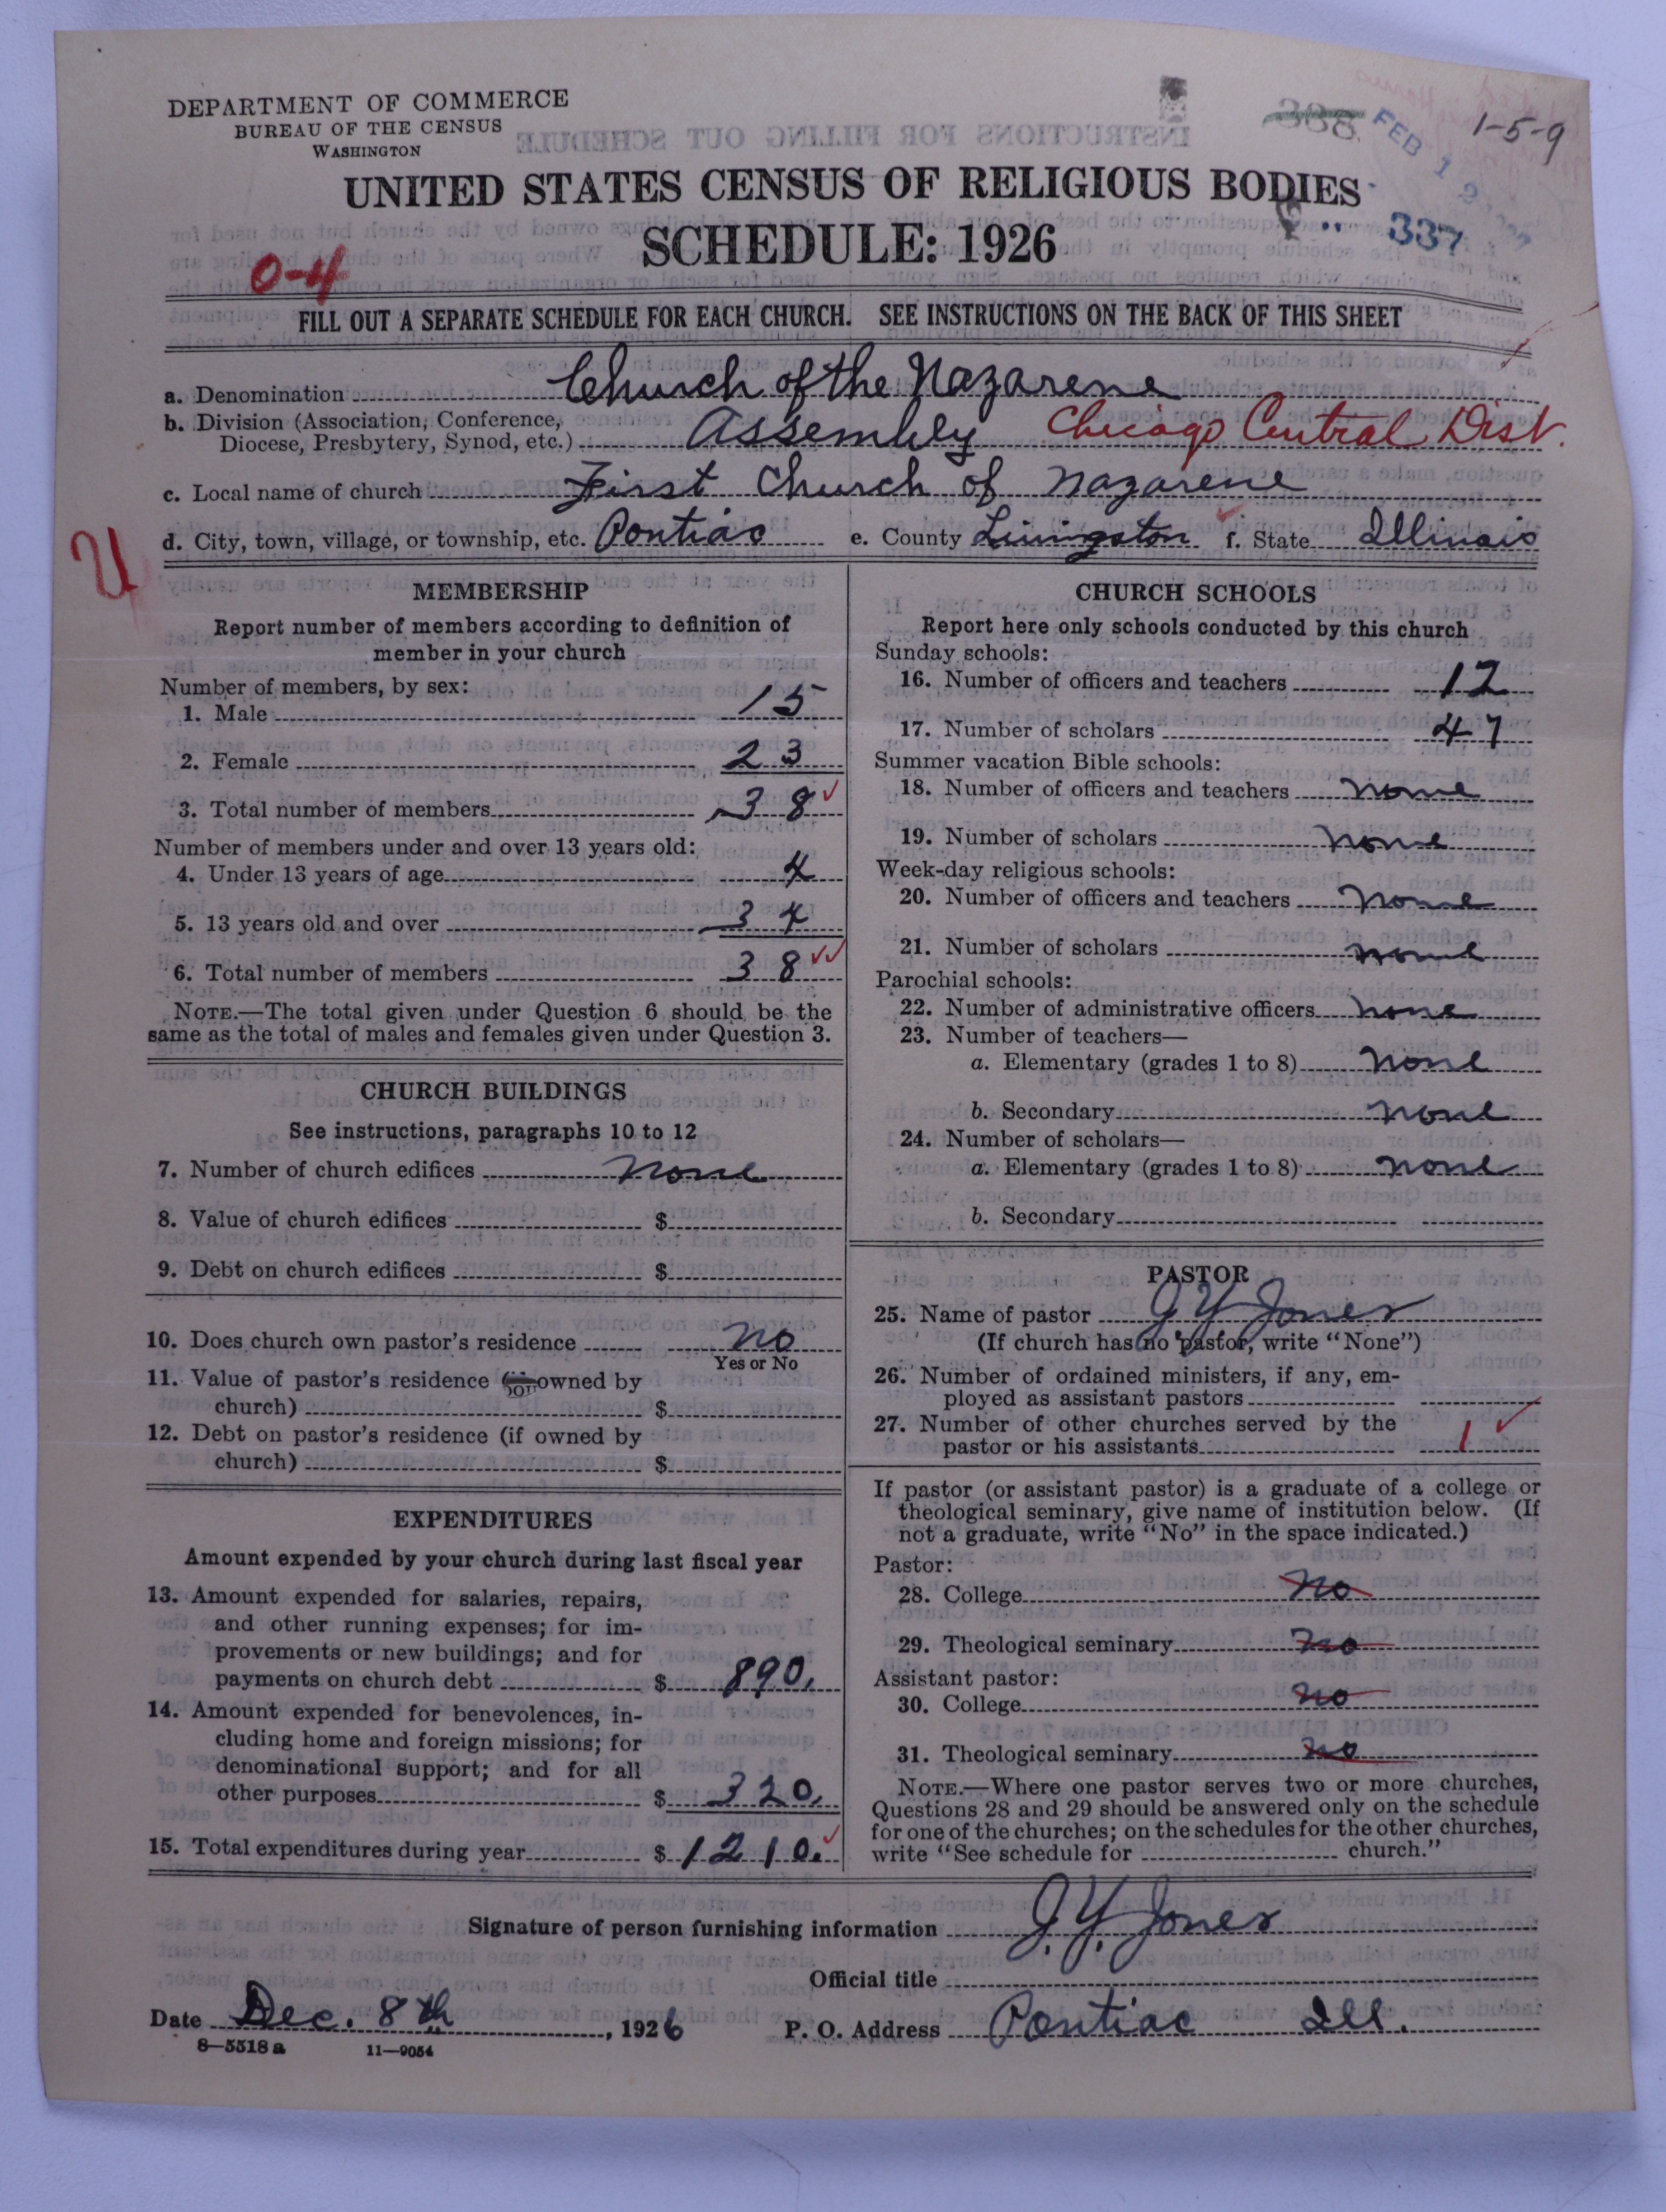 DEPARTMENT OF COMMERCE
BUREAU OF THE CENSUS
WASHINGTON
388
FEB 1
1-5-9
UNITED STATES CENSUS OF RELIGIOUS BODIES
337
SCHEDULE: 1926
0-4
FILL OUT A SEPARATE SCHEDULE FOR EACH CHURCH. SEE INSTRUCTIONS ON THE BACK OF THIS SHEET
a. Denomination Church of the Nazarene
b. Division (Association, Conference,
Diocese, Presbytery, Synod, etc.) Assembly Chicago Central Dist.
c. Local name of church First Church of Nazarene
d. City, town, village, or township, etc. Pontiac e. County Livingston f. State Illinois
MEMBERSHIP
Report number of members according to definition of
member in your church
Number of members, by sex:
1. Male 15
2. Female 23
3. Total number of members 38 ✓
Number of members under and over 13 years old:
4. Under 13 years of age 4
5. 13 years old and over 34
6. Total number of members 38 ✓✓
NOTE.—The total given under Question 6 should be the
same as the total of males and females given under Question 3.
CHURCH BUILDINGS
See instructions, paragraphs 10 to 12
7. Number of church edifices none
8. Value of church edifices $
9. Debt on church edifices $
10. Does church own pastor's residence no
Yes or No
11. Value of pastor's residence owned by
church) $
12. Debt on pastor's residence (if owned by
church) $
EXPENDITURES
Amount expended by your church during last fiscal year
13. Amount expended for salaries, repairs,
and other running expenses; for im-
provements or new buildings; and for
payments on church debt $ 890.
14. Amount expended for benevolences, in-
cluding home and foreign missions; for
denominational support; and for all
other purposes $ 320.
15. Total expenditures during year $ 1210. ✓
CHURCH SCHOOLS
Report here only schools conducted by this church
Sunday schools:
16. Number of officers and teachers 12
17. Number of scholars 47
Summer vacation Bible schools:
18. Number of officers and teachers none
19. Number of scholars none
Week-day religious schools:
20. Number of officers and teachers none
21. Number of scholars none
Parochial schools:
22. Number of administrative officers none
23. Number of teachers—
a. Elementary (grades 1 to 8) none
b. Secondary none
24. Number of scholars—
a. Elementary (grades 1 to 8) none
b. Secondary
PASTOR
25. Name of pastor J Y Jones
(If church has no pastor, write "None")
26. Number of ordained ministers, if any, em-
ployed as assistant pastors
27. Number of other churches served by the
pastor or his assistants 1 ✓
If pastor (or assistant pastor) is a graduate of a college or
theological seminary, give name of institution below. (If
not a graduate, write "No" in the space indicated.)
Pastor:
28. College No
29. Theological seminary no
Assistant pastor:
30. College no
31. Theological seminary no
NOTE.—Where one pastor serves two or more churches,
Questions 28 and 29 should be answered only on the schedule
for one of the churches; on the schedules for the other churches,
write "See schedule for church."
Signature of person furnishing information J. Y. Jones
Official title
Date Dec. 8th, 1926 P. O. Address Pontiac Ill.
8—5518 a 11—9054